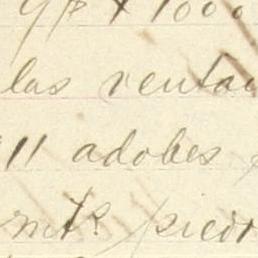 1000
las ventan
11 adobes
mts piedr